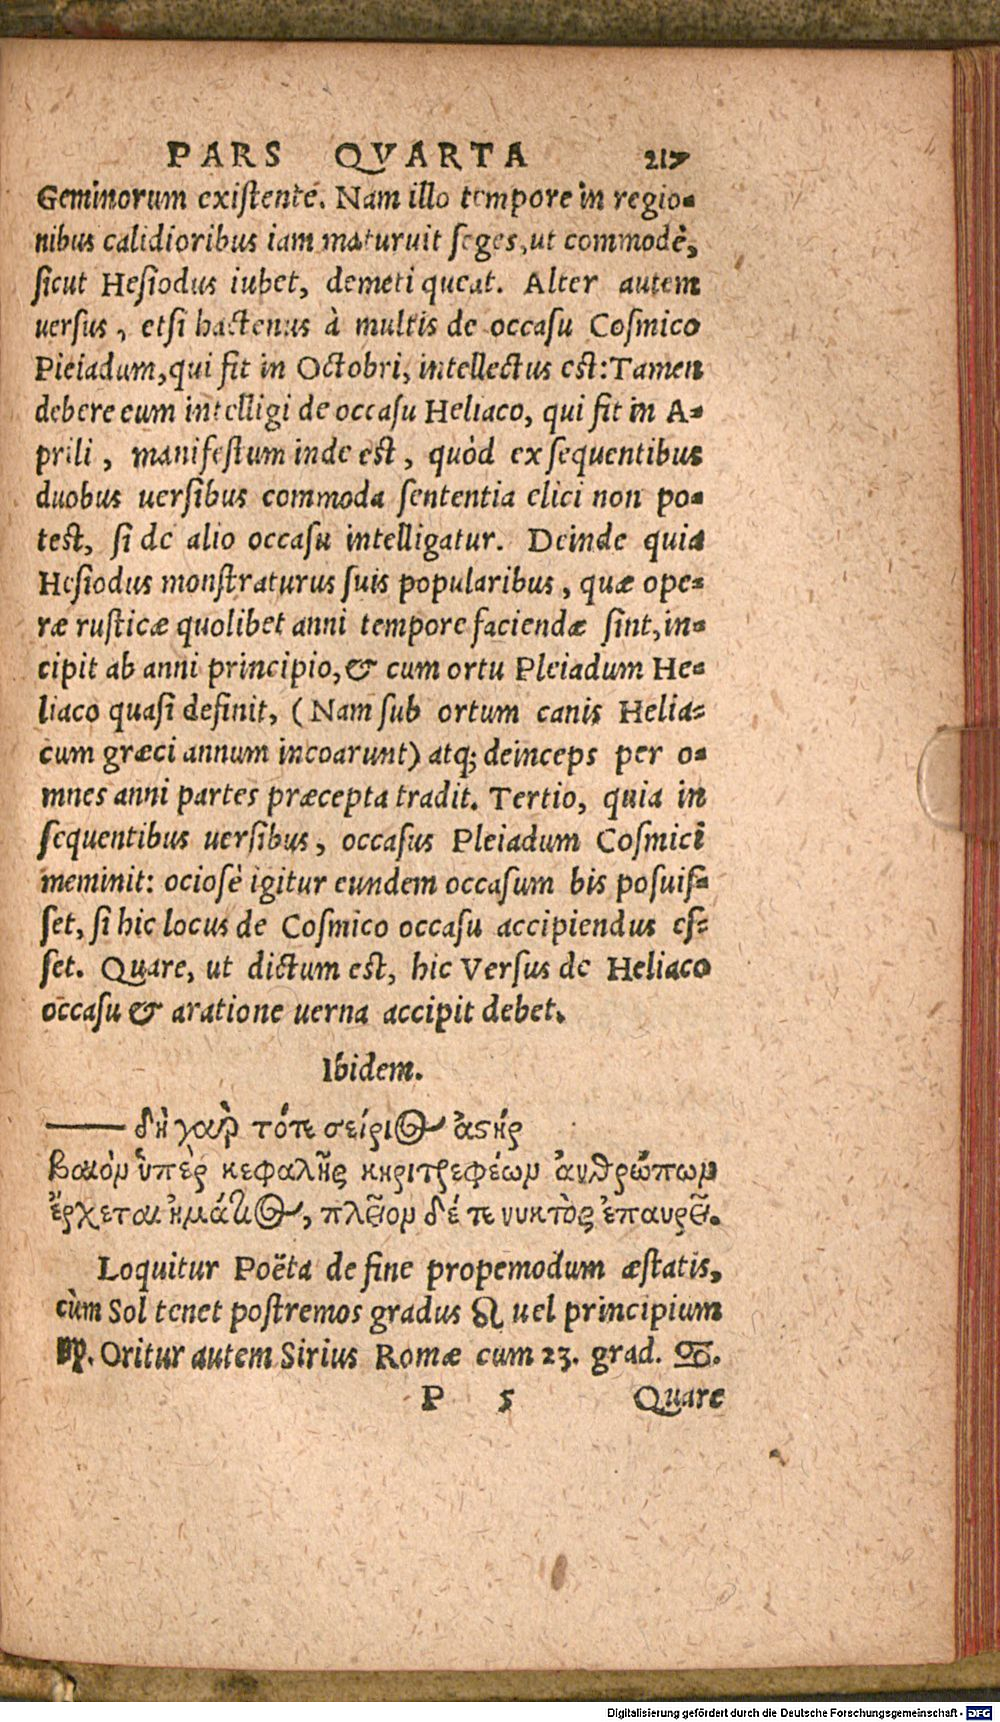 PARS QVARTA 217
Geminorum existente. Nam illo tempore in regio-
nibus calidioribus iam maturuit seges, ut commodè,
sicut Hesiodus iubet, demeti queat. Alter autem
uersus, etsi hactenus à multis de occasu Cosmico
Pleiadum, qui fit in Octobri, intellectus est: Tamen
debere eum intelligi de occasu Heliaco, qui fit in A-
prili, manifestum inde est, quòd ex sequentibus
duobus uersibus commoda sententia elici non po-
test, si de alio occasu intelligatur. Deinde quia
Hesiodus monstraturus suis popularibus, quæ ope-
ræ rusticæ quolibet anni tempore faciendæ sint, in-
cipit ab anni principio, & cum ortu Pleiadum He-
liaco quasi definit, (Nam sub ortum canis Helia-
cum græci annum incoarunt) atq; deinceps per o-
mnes anni partes præcepta tradit. Tertio, quia in
sequentibus uersibus, occasus Pleiadum Cosmici
meminit: ociosè igitur eundem occasum bis posuis-
set, si hic locus de Cosmico occasu accipiendus es-
set. Quare, ut dictum est, hic Versus de Heliaco
occasu & aratione uerna accipit debet.
Ibidem.
— δὴ γαρ τότε σείριος ἀστήρ
βαιὸν ὑπὲρ κεφαλῆς κηριτρεφέων ἀνθρώπων
ἔρχεται ἠμάτιος, πλεῖον δέ τε νυκτὸς ἐπαυρεῖ.
Loquitur Poëta de fine propemodum æstatis,
cùm Sol tenet postremos gradus ♌ uel principium
♍. Oritur autem Sirius Romæ cum 23. grad. ♋.
P 5 Quare
Digitalisierung gefördert durch die Deutsche Forschungsgemeinschaft - DFG